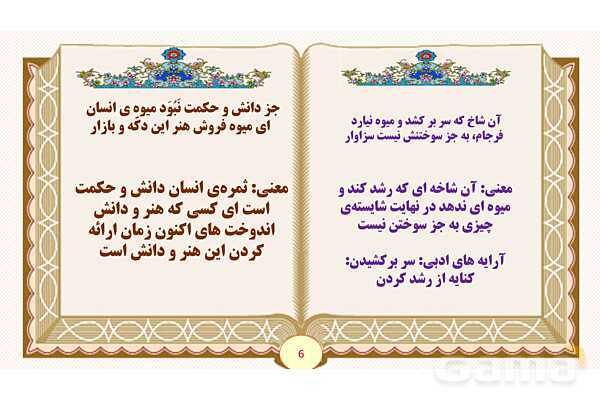 آن شاخ که سر بر کشد و میوه نیارد
فرجام، به جز سوختنش نیست سزاوار
معنی: آن شاخه ای که رشد کند و
میوه ای ندهد در نهایت شایسته‌ی
چیزی به جز سوختن نیست
آرایه های ادبی: سر برکشیدن:
کنایه از رشد کردن
جز دانش و حکمت نَبُوَد میوه ی انسان
ای میوه فروش هنر این دکّه و بازار
معنی: ثمره‌ی انسان دانش و حکمت
است ای کسی که هنر و دانش
اندوخت های اکنون زمان ارائه
کردن این هنر و دانش است
6
Gama